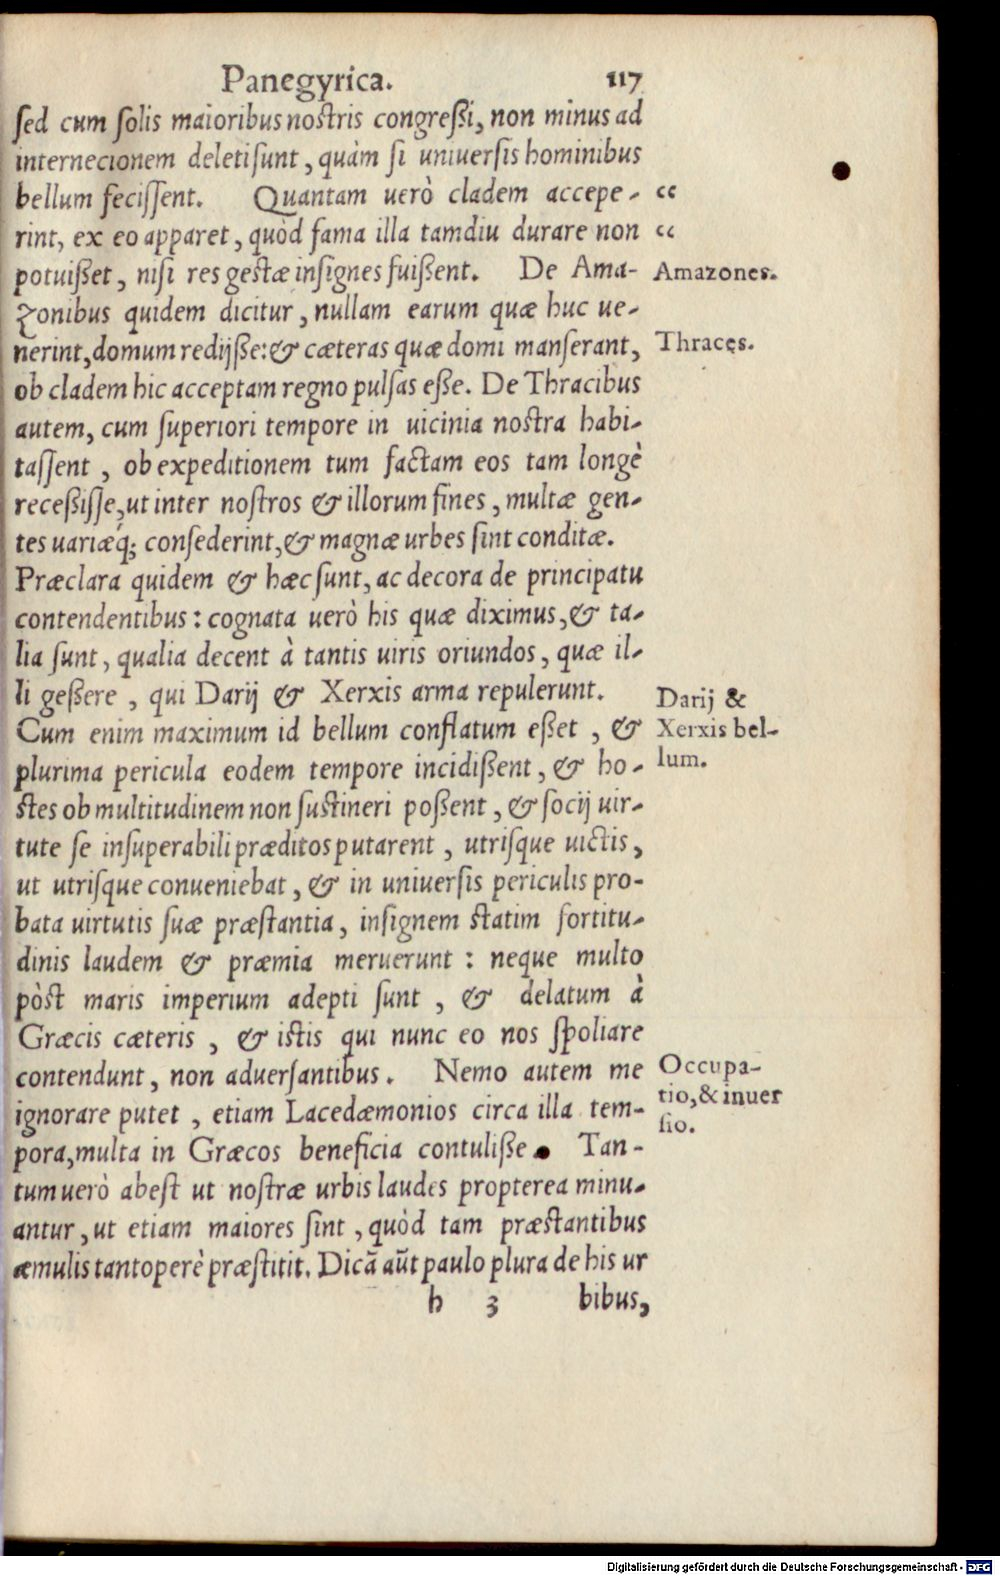 Panegyrica. 117
ſed cum ſolis maioribus noſtris congreßi, non minus ad
internecionem deleti ſunt, quàm ſi uniuerſis hominibus
bellum feciſſent. Quantam uerò cladem accepe- “
rint, ex eo apparet, quòd fama illa tamdiu durare non “
potuißet, niſi res geſtæ inſignes fuißent. De Ama- Amazones.
zonibus quidem dicitur, nullam earum quæ huc ue-
nerint, domum redijße: & cæteras quæ domi manſerant, Thraces.
ob cladem hic acceptam regno pulſas eße. De Thracibus
autem, cum ſuperiori tempore in uicinia noſtra habi-
taſſent, ob expeditionem tum factam eos tam longè
receßiſſe, ut inter noſtros & illorum fines, multæ gen-
tes uariæq́; conſederint, & magnæ urbes ſint conditæ.
Præclara quidem & hæc ſunt, ac decora de principatu
contendentibus: cognata uerò his quæ diximus, & ta-
lia ſunt, qualia decent à tantis uiris oriundos, quæ il-
li geßere, qui Darij & Xerxis arma repulerunt.
Cum enim maximum id bellum conflatum eßet, &
plurima pericula eodem tempore incidißent, & ho-
ſtes ob multitudinem non ſuſtineri poßent, & ſocij uir-
tute ſe inſuperabili præditos putarent, utriſque uictis,
ut utriſque conueniebat, & in uniuerſis periculis pro-
bata uirtutis ſuæ præſtantia, inſignem ſtatim fortitu-
dinis laudem & præmia meruerunt: neque multo
pòſt maris imperium adepti ſunt, & delatum à
Græcis cæteris, & iſtis qui nunc eo nos ſpoliare
contendunt, non aduerſantibus. Nemo autem me
ignorare putet, etiam Lacedæmonios circa illa tem-
pora, multa in Græcos beneficia contuliße. Tan-
tum uerò abeſt ut noſtræ urbis laudes propterea minu-
antur, ut etiam maiores ſint, quòd tam præſtantibus
æmulis tantoperè præſtitit. Dicã aũt paulo plura de his ur
h 3 bibus,
Darij &
Xerxis bel-
lum.
Occupa-
tio, & inuer
ſio.
Digitalisierung gefördert durch die Deutsche Forschungsgemeinschaft - DFG